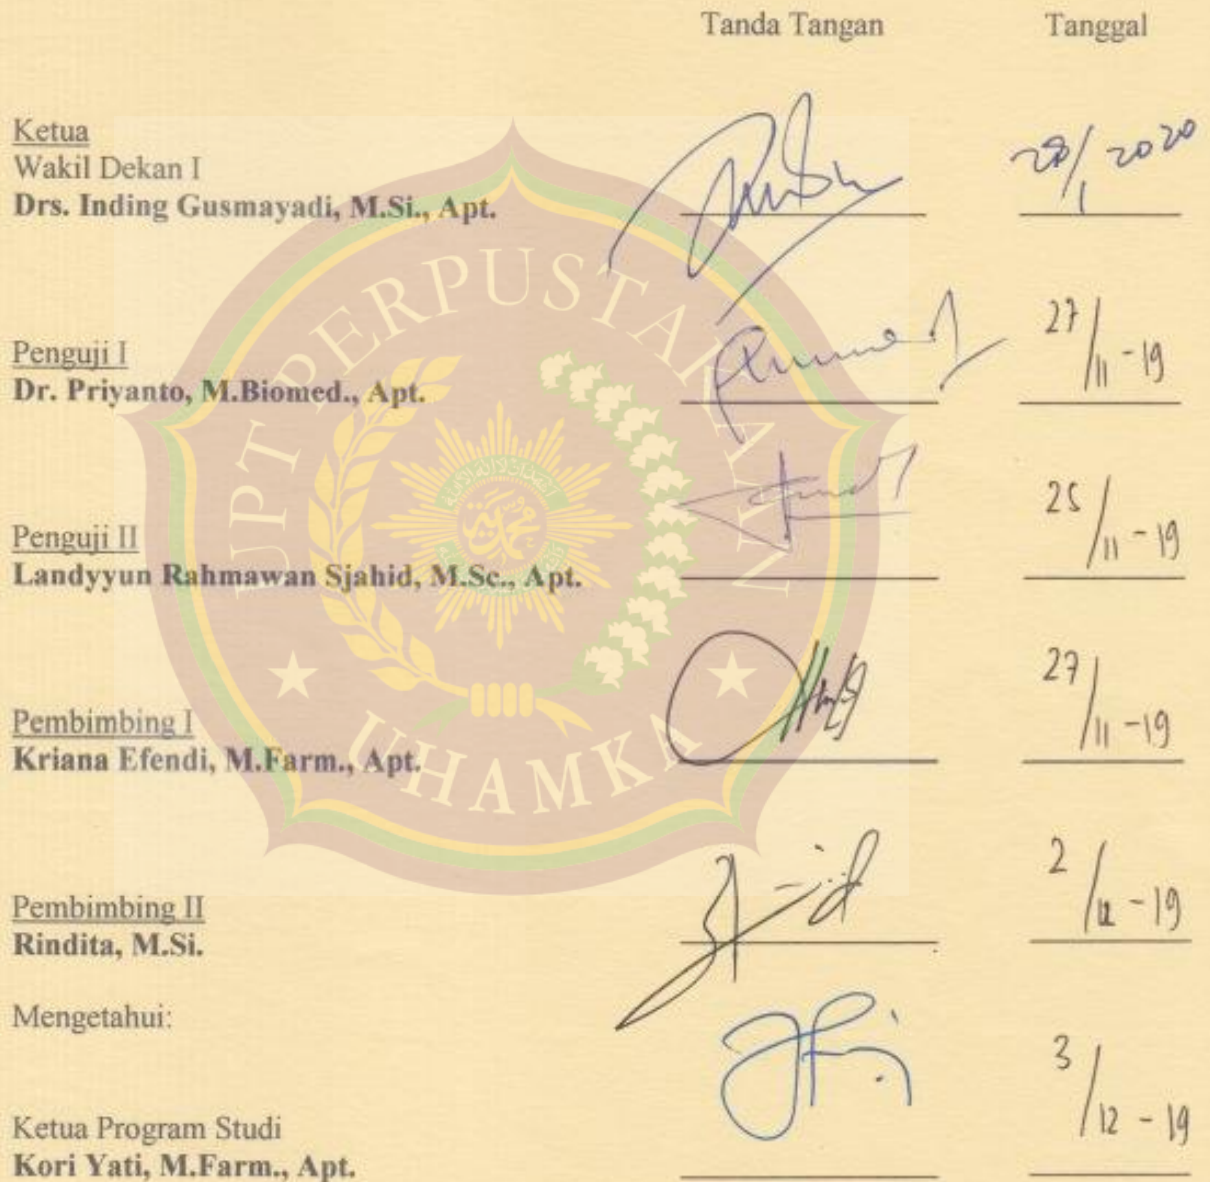 Tanda Tangan Tanggal
Ketua
Wakil Dekan I
Drs. Inding Gusmayadi, M.Si., Apt.
28/1 2020
Penguji I
Dr. Priyanto, M.Biomed., Apt.
27/11-19
Penguji II
Landyyun Rahmawan Sjahid, M.Sc., Apt.
25/11-19
Pembimbing I
Kriana Efendi, M.Farm., Apt.
27/11-19
Pembimbing II
Rindita, M.Si.
2/12-19
Mengetahui:
Ketua Program Studi
Kori Yati, M.Farm., Apt.
3/12-19
UPT PERPUSTAKAAN
UHAMKA